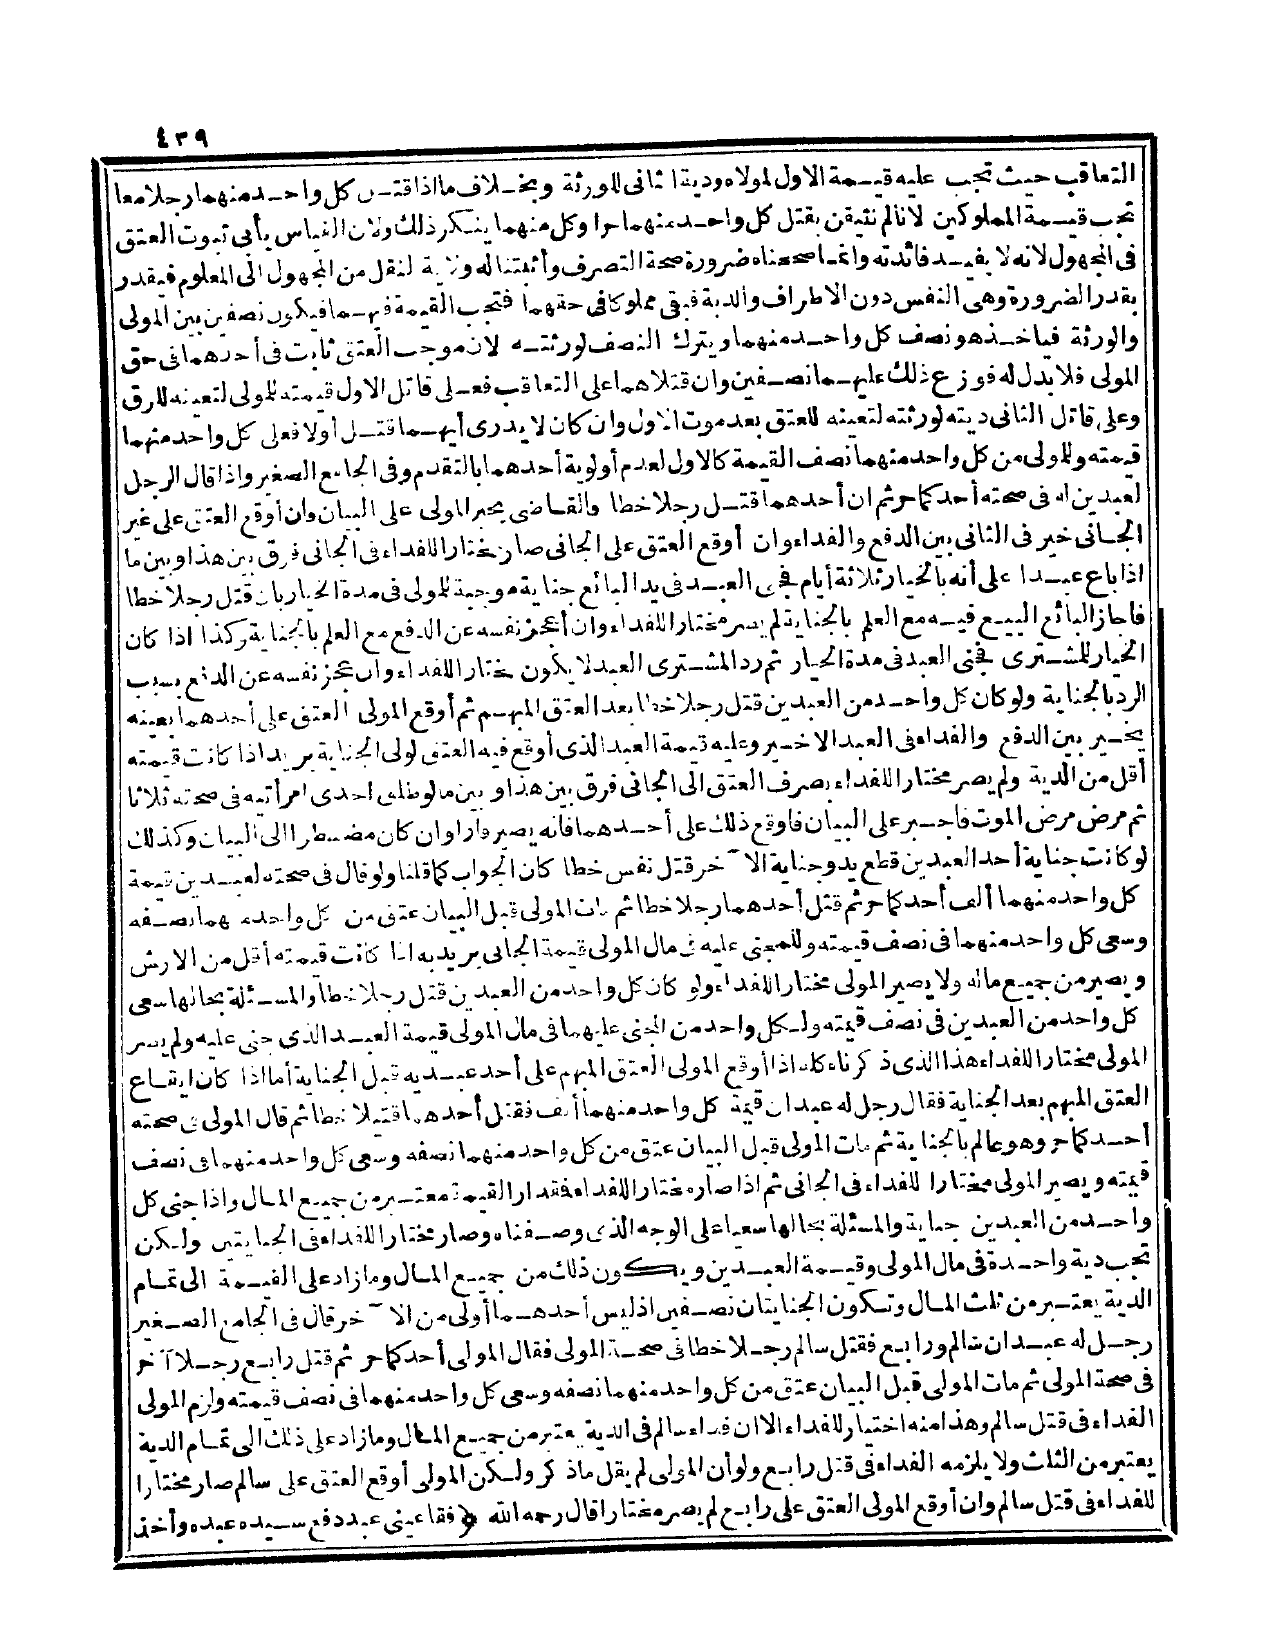 ٤٣٩
التعاقب حيث تجب عليه قيمة الاول لمولاه ودية الثانى للورثة وبخلاف ما اذا قتل كل واحد منهما رجلا معا
تجب قيمة المملوكين لانالم نتيقن بقتل كل واحد منهما حرا وكل منهما ينكر ذلك ولان القياس يأبى ثبوت العتق
فى المجهول لانه لا يفيد فائدته وانما صححناه ضرورة صحة التصرف وأثبتنا له ولاية النقل من المجهول الى المعلوم فيقدر
بقدر الضرورة وهى النفس دون الاطراف والدية فبقى مملوكا فى حقهما فتجب القيمة فيهما فيكون نصفين بين المولى
والورثة فيأخذ هو نصف كل واحد منهما ويترك النصف لورثته لان موجب العتق ثابت فى أحدهما فى حق
المولى فلا بدل له فوزع ذلك عليهما نصفين وان قتلاهما على التعاقب فعلى قاتل الاول قيمته للمولى لتعينه للرق
وعلى قاتل الثانى ديته لورثته لتعينه للعتق بعد موت الاول وان كان لا يدرى أيهما قتل أولا فعلى كل واحد منهما
قيمته وللمولى من كل واحد منهما نصف القيمة كالاول لعدم أولوية أحدهما بالتقدم وفى الجامع الصغير واذا قال الرجل
لعبدين له فى صحته أحدكما حر ثم ان أحدهما قتل رجلا خطا فالقاضى يجبر المولى على البيان وان أوقع العتق على غير
الجانى خير فى الثانى بين الدفع والفداء وان أوقع العتق على الجانى صار مختارا للفداء فى الجانى فرق بين هذا وبين ما
اذا باع عبدا على أنه بالخيار ثلاثة أيام فجنى العبد فى يد البائع جناية موجبة للمولى فى مدة الخيار بان قتل رجلا خطا
فاجاز البائع البيع فيه مع العلم بالجناية لم يصر مختارا للفداء وان أعجز نفسه عن الدفع مع العلم بالجناية وكذا اذا كان
الخيار للمشترى فجنى العبد فى مدة الخيار ثم رد المشترى العبد لا يكون مختارا للفداء وان عجز نفسه عن الدفع بسبب
الرد بالجناية ولو كان كل واحد من العبدين قتل رجلا خطا بعد العتق المبهم ثم أوقع المولى العتق على أحدهما بعينه
يخير بين الدفع والفداء فى العبد الاخير وعليه قيمة العبد الذى أوقع فيه العتق لولى الجناية يريد اذا كانت قيمته
أقل من الدية ولم يصر مختارا للفداء بصرف العتق الى الجانى فرق بين هذا وبين ما لو طلق احدى امرأتيه فى صحته ثلاثا
ثم مرض مرض الموت فاجبر على البيان فاوقع ذلك على أحدهما فانه يصير فارا وان كان مضطرا الى البيان وكذلك
لو كانت جناية أحد العبدين قطع يد وجناية الآخر قتل نفس خطا كان الجواب كما قلنا ولو قال فى صحته لعبدين قيمة
كل واحد منهما ألف أحدكما حر ثم قتل أحدهما رجلا خطا ثم مات المولى قبل البيان عتق من كل واحد منهما نصفه
وسعى كل واحد منهما فى نصف قيمته وللمجنى عليه فى مال المولى قيمة الجانى يريد به اذا كانت قيمته أقل من الارش
ويصير من جميع ماله ولا يصير المولى مختارا للفداء ولو كان كل واحد من العبدين قتل رجلا خطا والمسئلة بحالها سعى
كل واحد من العبدين فى نصف قيمته ولكل واحد من المجنى عليهما فى مال المولى قيمة العبد الذى جنى عليه ولم يصر
المولى مختارا للفداء هذا الذى ذكرناه كله اذا أوقع المولى العتق المبهم على أحد عبديه قبل الجناية أما اذا كان ايقاع
العتق المبهم بعد الجناية فقال رجل له عبدان قيمة كل واحد منهما ألف فقتل أحدهما قتيلا خطا ثم قال المولى فى صحته
أحدكما حر وهو عالم بالجناية ثم مات المولى قبل البيان عتق من كل واحد منهما نصفه وسعى كل واحد منهما فى نصف
قيمته ويصير المولى مختارا للفداء فى الجانى ثم اذا صار مختارا للفداء فقدار القيمة معتبر من جميع المال واذا جنى كل
واحد من العبدين جناية والمسئلة بحالها سعيا على الوجه الذى وصفناه وصار مختارا للفداء فى الجنايتين ولكن
تجب دية واحدة فى مال المولى وقيمة العبدين ويكون ذلك من جميع المال وما زاد على القيمة الى تمام
الدية يعتبر من ثلث المال وتكون الجنايتان نصفين اذ ليس أحدهما أولى من الآخر قال فى الجامع الصغير
رجل له عبدان سالم ورابع فقتل سالم رجلا خطا فى صحة المولى فقال المولى أحدكما حر ثم قتل رابع رجلا آخر
فى صحة المولى ثم مات المولى قبل البيان عتق من كل واحد منهما نصفه وسعى كل واحد منهما فى نصف قيمته ولزم المولى
الفداء فى قتل سالم وهذا منه اختيار للفداء الا ان فداء سالم فى الدية يعتبر من جميع المال وما زاد على ذلك الى تمام الدية
يعتبر من الثلث ولا يلزمه الفداء فى قتل رابع ولو أن المولى لم يقل ماذكر ولكن المولى أوقع العتق على سالم صار مختارا
للفداء فى قتل سالم وان أوقع المولى العتق على رابع لم يصر مختارا قال رحمه الله ﴿فقأ عينى عبد دفع سيده عبده وأخذ